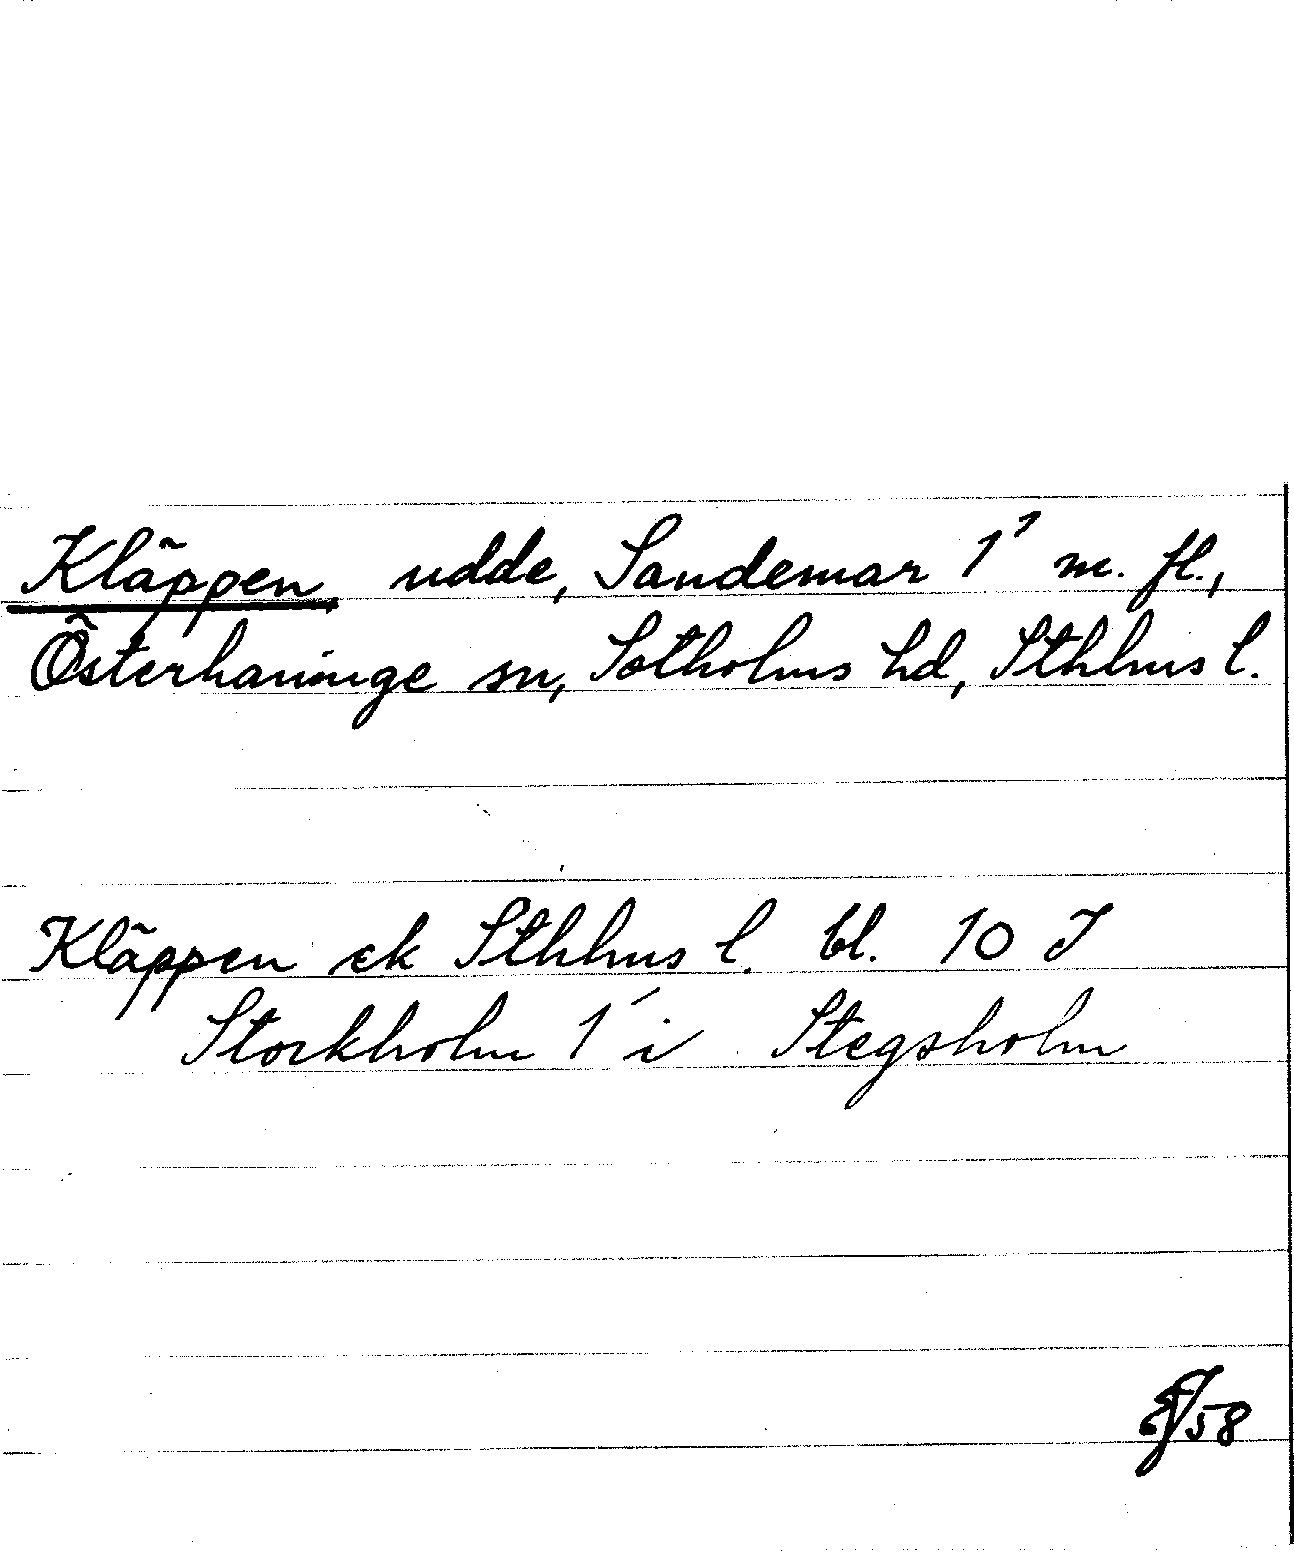 Kläppen, udde, Sandemar 1¹ m. fl.,
Österhaninge sn, Sotholms hd, Sthlms l.
Kläppen ek Sthlms l. bl. 10 J
Stockholm 1 i Stegsholm
/58